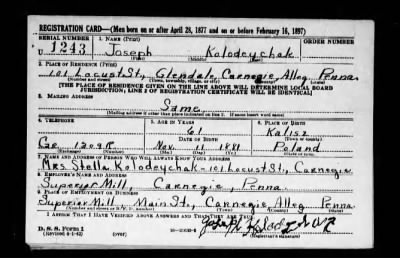 REGISTRATION CARD—(Men born on or after April 28, 1877 and on or before February 16, 1897)
SERIAL NUMBER 1. NAME (Print) ORDER NUMBER
U 1243 Joseph Kolodeychak
(First) (Middle) (Last)
2. PLACE OF RESIDENCE (Print)
101 Locust St., Glendale, Carnegie, Alleg. Penna.
(Number and street) (Town, township, village, or city) (County) (State)
[THE PLACE OF RESIDENCE GIVEN ON THE LINE ABOVE WILL DETERMINE LOCAL BOARD
JURISDICTION; LINE 2 OF REGISTRATION CERTIFICATE WILL BE IDENTICAL]
3. MAILING ADDRESS
Same
[Mailing address if other than place indicated on line 2. If same insert word same]
4. TELEPHONE 5. AGE IN YEARS 6. PLACE OF BIRTH
61 Kalisz
DATE OF BIRTH (Town or county)
Car. 1209R Nov. 11 1881 Poland
(Exchange) (Number) (Mo.) (Day) (Yr.) (State or country)
7. NAME AND ADDRESS OF PERSON WHO WILL ALWAYS KNOW YOUR ADDRESS
Mrs. Stella Kolodeychak-101 Locust St., Carnegie
8. EMPLOYER'S NAME AND ADDRESS
Superior Mill Carnegie, Penna.
9. PLACE OF EMPLOYMENT OR BUSINESS
Superior Mill, Main St., Carnegie, Alleg. Penna.
(Number and street or R. F. D. number) (Town) (County) (State)
I AFFIRM THAT I HAVE VERIFIED ABOVE ANSWERS AND THAT THEY ARE TRUE.
D. S. S. Form 1
(Revised 4-1-42) (over) Joseph
(Registrant's signature)